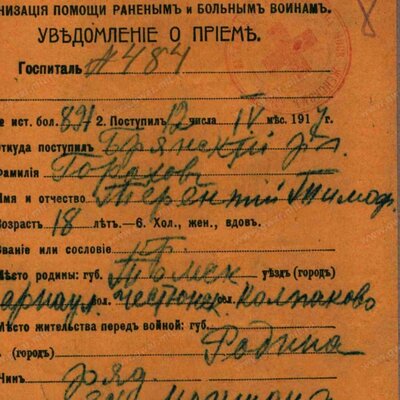 НИЗАЦІЯ ПОМОЩИ РАНЕНЫМЪ и БОЛЬНЫМЪ ВОИНАМЪ.
УВѢДОМЛЕНІЕ О ПРІЕМѢ.
Госпиталь № 484
ист. бол. 891 2. Поступилъ 12 числа IV мѣс. 1917 г.
Откуда поступилъ Брянскій рп.
Фамилія Гороховъ
Имя и отчество Терентій Тимоф.
Возрастъ 18 лѣтъ.—6. Хол., жен., вдов.
Званіе или сословіе
Мѣсто родины: губ. Томск уѣзд (городъ)
арнаул. вол. сел. Колпаково
Мѣсто жительства передъ войной: губ.
(городъ) Родина
Чинъ ряд